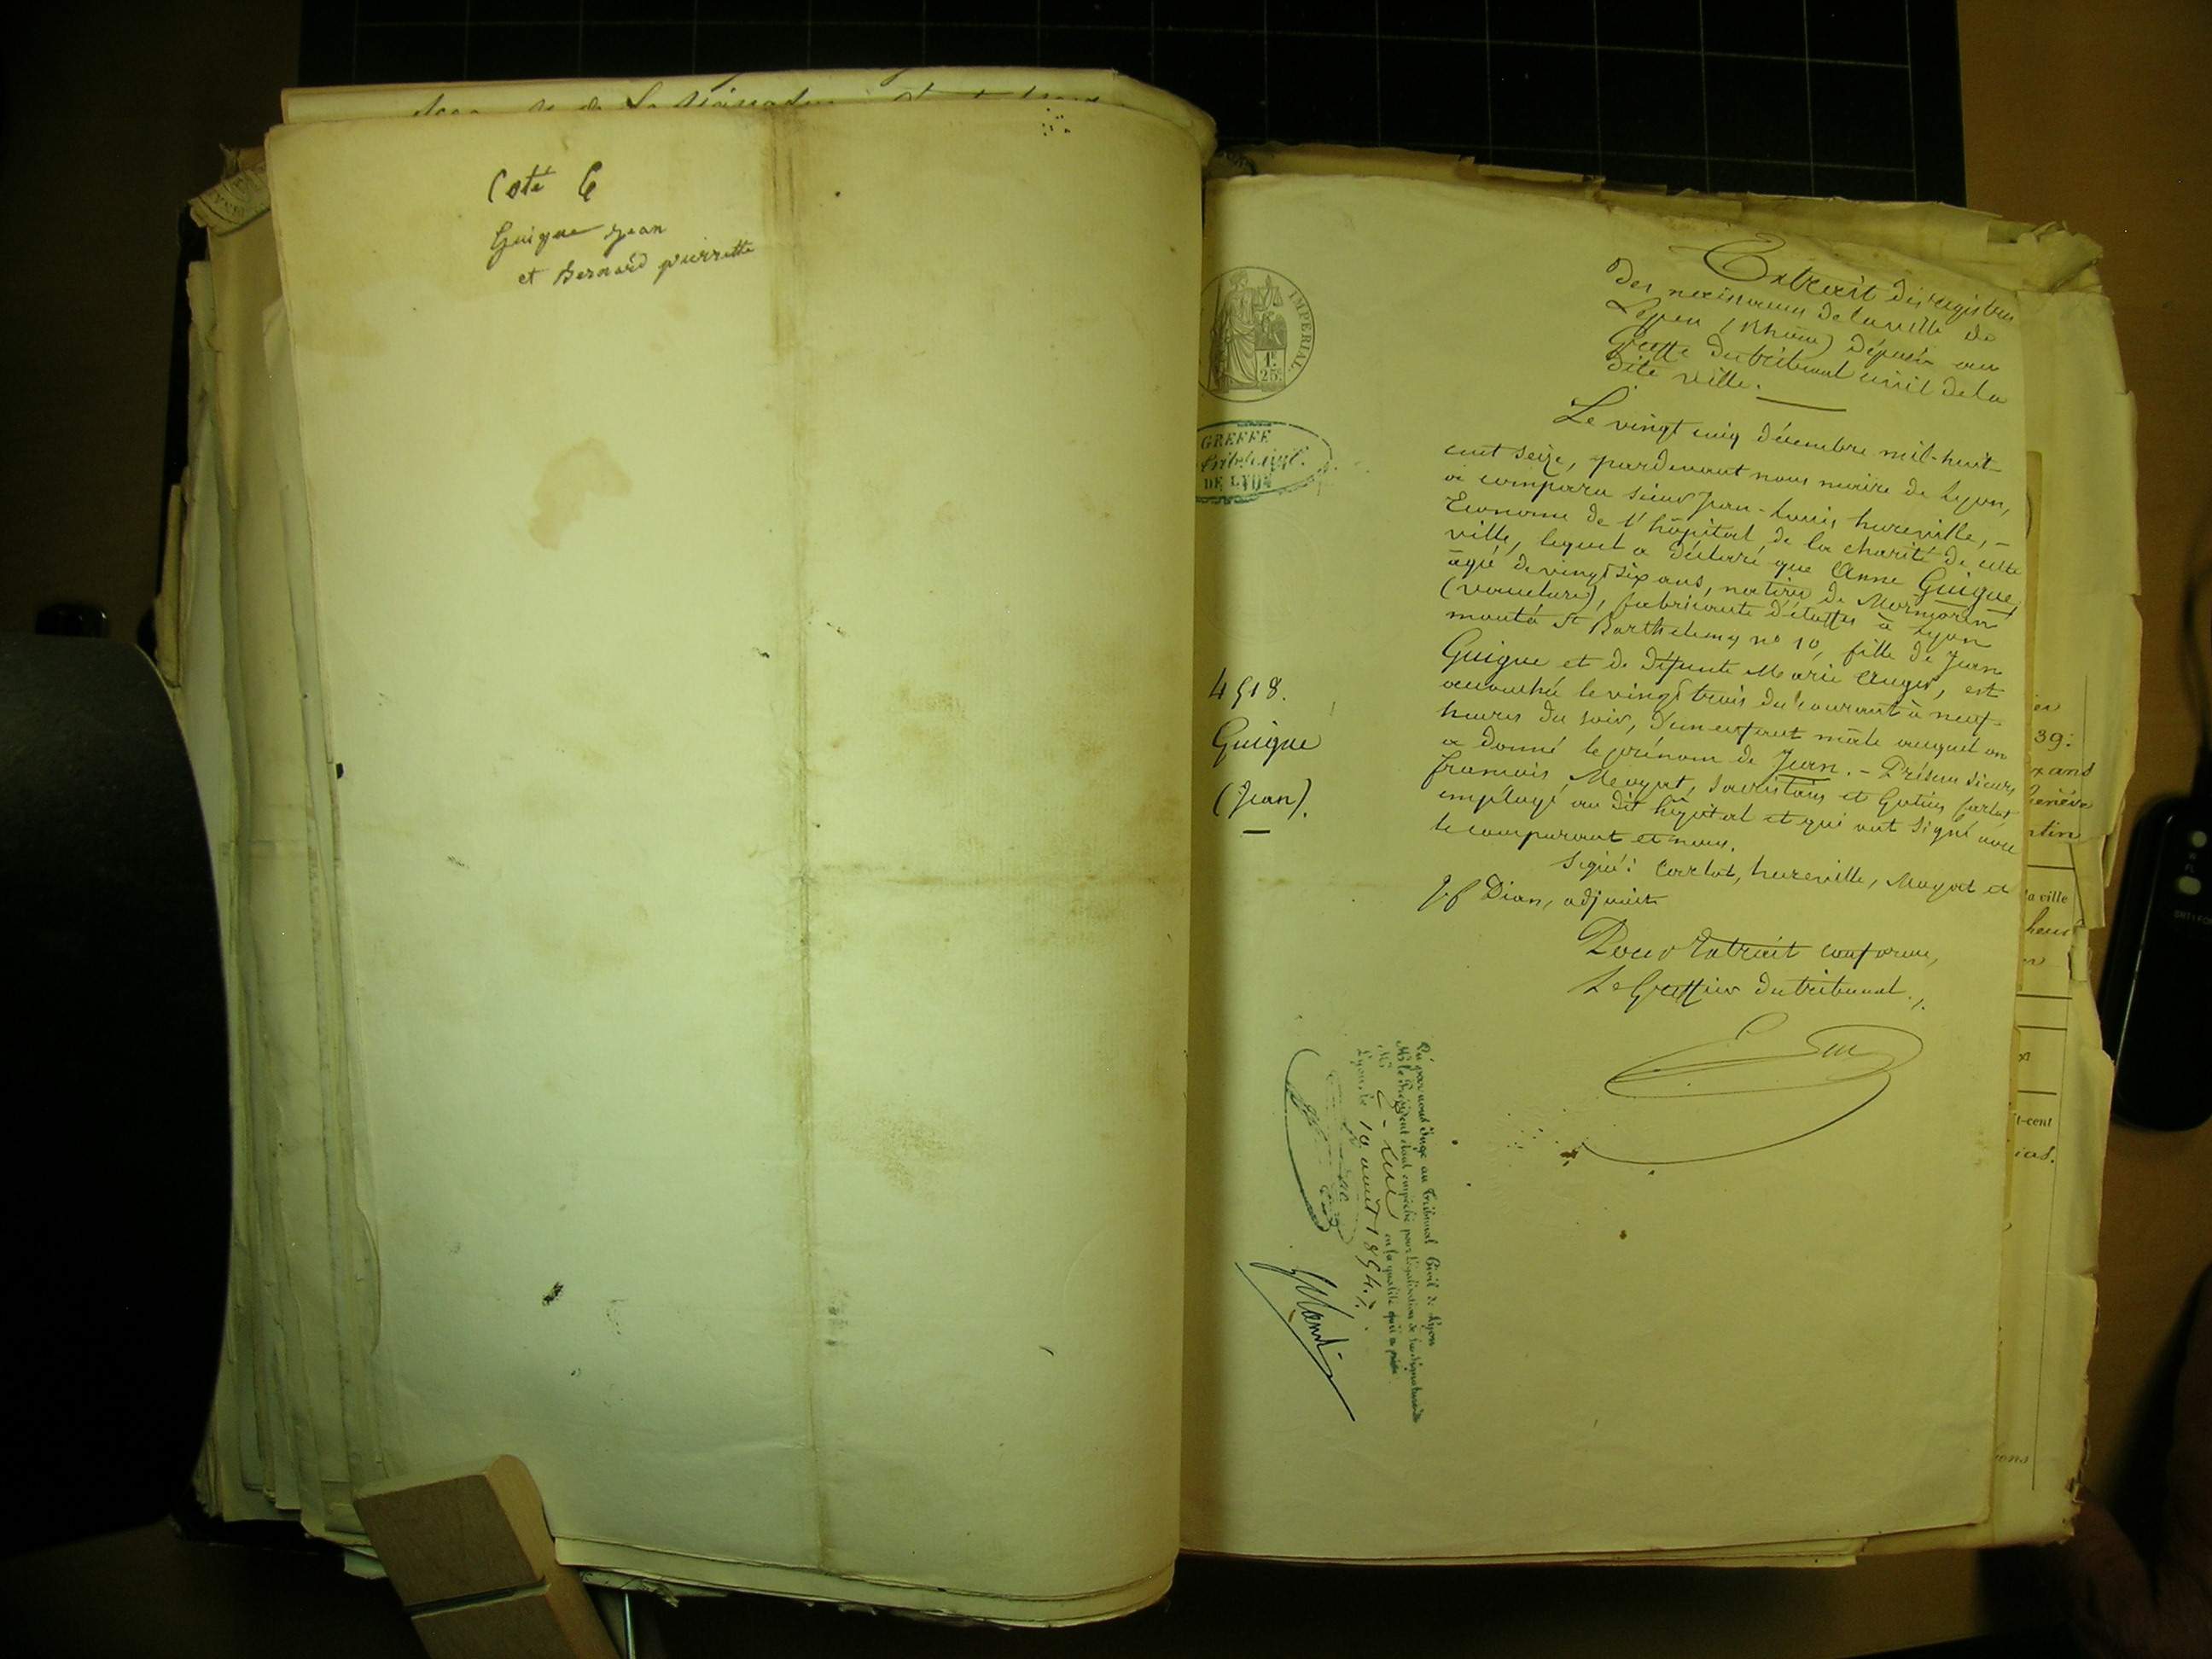 Coté 6
Guigue Jean
et Bernard pierrette
IMPERIAL.
1F
25c
GREFFE
DE LYON
4518.
Guigue
(Jean).
Extrait des registres
des naissances de la ville de
Lyon (Rhône) déposés au
Greffe du tribunal civil de la
dite ville.
Le vingt cinq décembre mil-huit-
cent seize, pardevant nous maire de Lyon,
a comparu sieur Jean-Louis hureville, -
Econome de l'hôpital de la charité de cette
ville, lequel a déclaré que Anne Guigue,
âgée de vingt six ans, native de Mormoron
(vaucluse), fabricante d'étoffes à Lyon
montée St Barthelemy no 10, fille de Jean
Guigue et de défunte Marie Auger, est
accouchée le vingt trois du courant à neuf-
heures du soir, d'un enfant mâle auquel on
a donné le prénom de Jean. - Présens sieurs
francois Mayat, Sacristain et Carlat
employé au dit hôpital et qui ont signé avec
le comparant et nous.
Signé: Carlat, hureville, Mayat et
Jh Dian, adjoint
Pour Extrait conforme,
Le Greffier du tribunal,
Vu par nous Juge au Tribunal Civil de Lyon
Mr le Président étant empêché pour légalisation de la signature de
Mr en sa qualité qu'il a prise
Lyon le 19 août 1854.
39.
la ville
t-cent